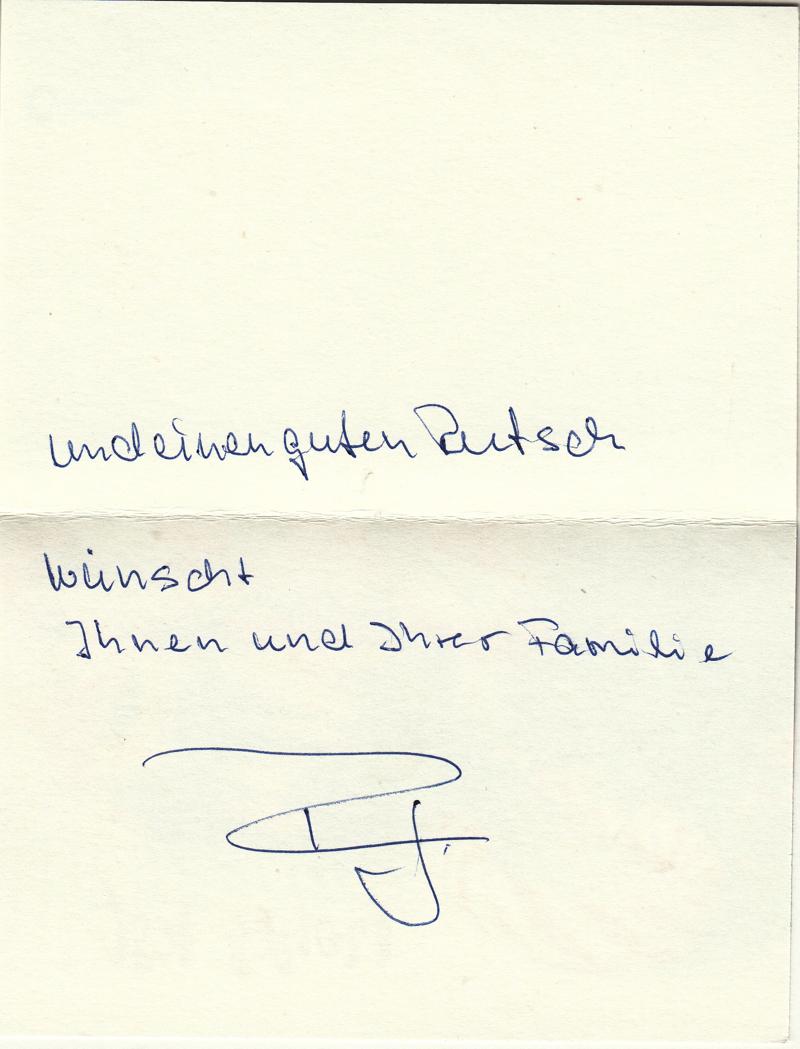 und einen guten Rutsch
wünscht
Ihnen und Ihrer Familie